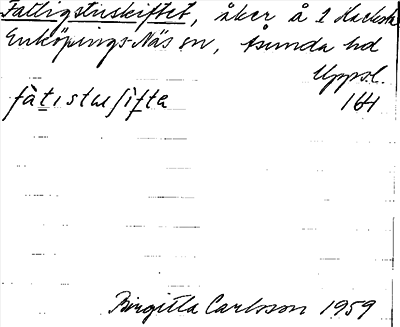 Fattigstuskiftet, åker å 1 Hacksta
Enköpings-Näs sn, Åsunda hd
Uppsl.
fà̀t̲ıstuʃìfta 1H1
Birgitta Carlsson 1959